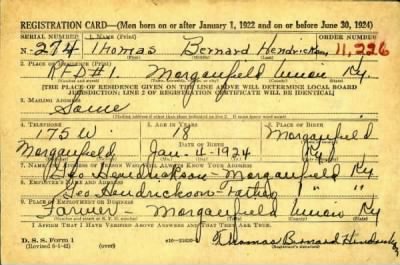 REGISTRATION CARD—(Men born on or after January 1, 1922 and on or before June 30, 1924)
SERIAL NUMBER 1. NAME (Print) ORDER NUMBER
N- 274 Thomas Bernard Hendrickson 11,226
2. PLACE OF RESIDENCE (Print)
RFD#1. Morganfield Union Ky.
[THE PLACE OF RESIDENCE GIVEN ON THE LINE ABOVE WILL DETERMINE LOCAL BOARD
JURISDICTION; LINE 2 OF REGISTRATION CERTIFICATE WILL BE IDENTICAL]
3. MAILING ADDRESS
Same
4. TELEPHONE 5. AGE IN YEARS 6. PLACE OF BIRTH
175 W 18 Morganfield
DATE OF BIRTH
Morganfield Jan. 4-1924 Ky.
7. NAME AND ADDRESS OF PERSON WHO WILL ALWAYS KNOW YOUR ADDRESS
Geo Hendrickson - Morganfield Ky
8. EMPLOYER'S NAME AND ADDRESS
Geo Hendrickson - Father " " "
9. PLACE OF EMPLOYMENT OR BUSINESS
Farmer - Morganfield Union Ky
I AFFIRM THAT I HAVE VERIFIED ABOVE ANSWERS AND THAT THEY ARE TRUE.
D. S. S. Form 1
(Revised 6-1-42) (over)
Thomas Bernard Hendrickson